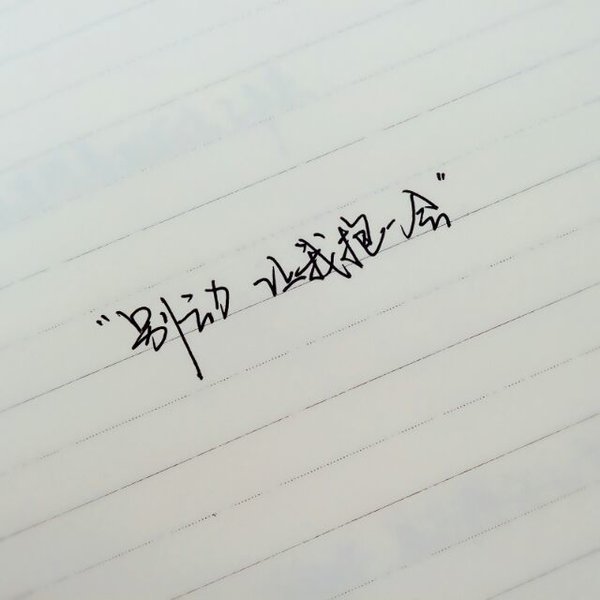 “别动 让我抱一会”